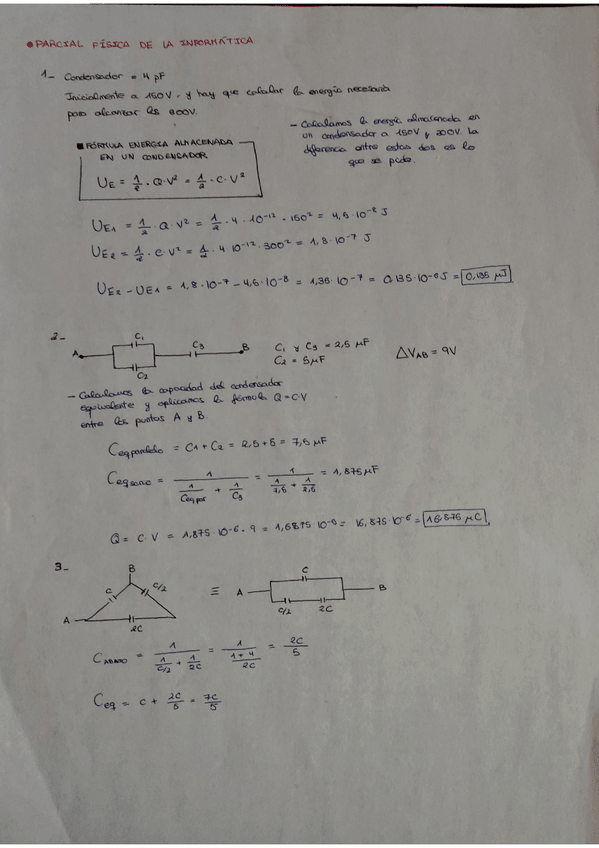 ● PARCIAL FÍSICA DE LA INFORMÁTICA
1- Condensador = 4 pF
Inicialmente a 150V. y hay que calcular la energía necesaria
para alcanzar los 300V.
- Calculamos la energía almacenada en
un condensador a 150V y 300V. La
diferencia entre estas dos es lo
que se pide.
■ FÓRMULA ENERGÍA ALMACENADA
EN UN CONDENSADOR
U_E = 1/2 · Q·V² = 1/2 · C·V²
U_E1 = 1/2 · Q·V² = 1/2 · 4·10⁻¹² · 150² = 4,5·10⁻⁸ J
U_E2 = 1/2 · C·V² = 1/2 · 4 10⁻¹²· 300² = 1,8·10⁻⁷ J
U_E2 - U_E1 = 1,8·10⁻⁷ - 4,5·10⁻⁸ = 1,35·10⁻⁷ = 0,135·10⁻⁶ J = 0,135 μJ
2-
A C₁ C₂ C₃ B
C₁ y C₃ = 2,5 μF
C₂ = 5μF
ΔV_AB = 9V
- Calculamos la capacidad del condensador
equivalente y aplicamos la fórmula Q=C·V
entre los puntos A y B.
Ceq paralelo = C1 + C2 = 2,5+5 = 7,5 μF
Ceq serie = 1/(1/Ceq par + 1/C3) = 1/(1/7,5 + 1/2,5) = 1,875 μF
Q = C·V = 1,875·10⁻⁶ · 9 = 1,6875 10⁻⁵ = 16,875·10⁻⁶ = 16,875 μC
3-
B C C/2 A 2C ≡ A C C/2 2C B
C_ABAJO = 1/(1/(C/2) + 1/2C) = 1/((1+4)/2C) = 2C/5
Ceq = C + 2C/5 = 7C/5